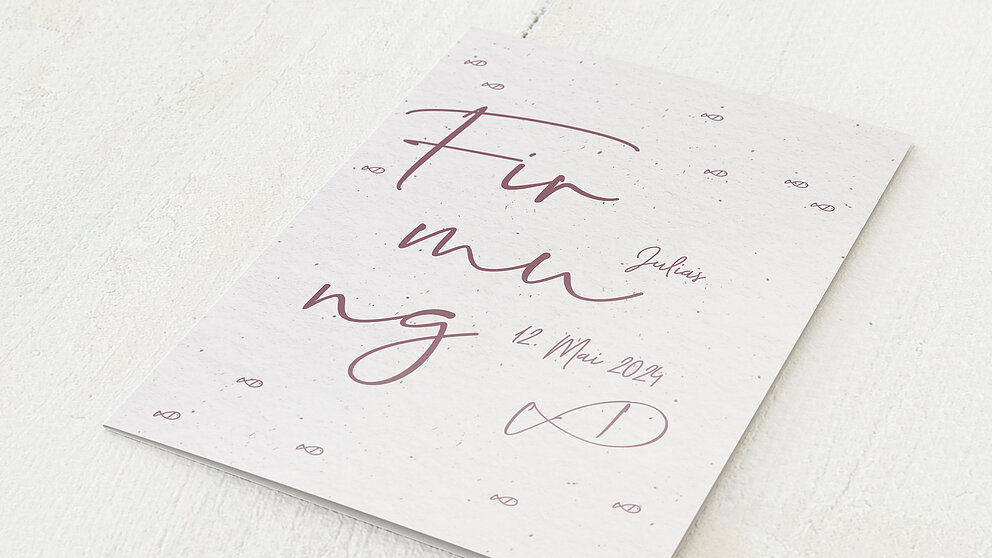 Fir
mu
Julias
ng
12. Mai 2024